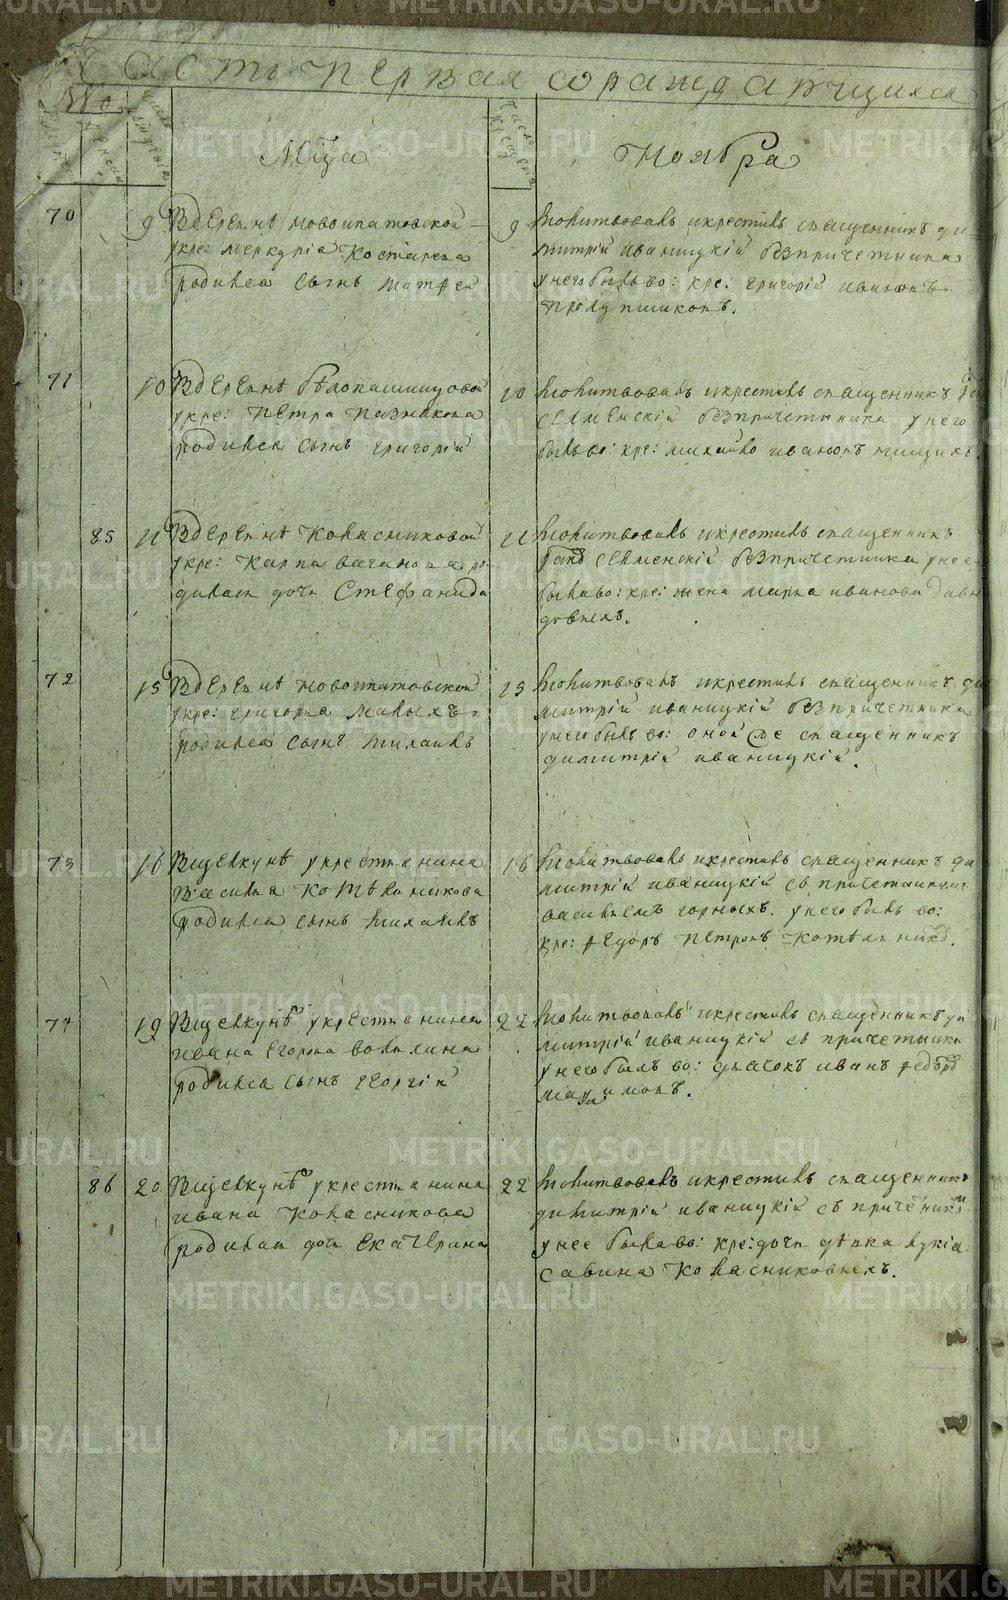 Часть первая о раждающихся
Мца Ноября
70 9 В деревне новоипатовской
у кре: меркурia Костарева
родился сынъ матфей
9 молитвовалъ и крестилъ священникъ ди-
митрій иваницкій без причетника
у него былъ во: кре: григорій ивановъ
71 10 В деревне белопашинцовой
у кре: петра пазникова
родился сынъ григорій
10 молитвовалъ и крестилъ священникъ
селменскій без причетника у него
былъ во: кре: михайло ивановъ
85 11 В деревне Колясниковой
у кре: карпа ваганова ро-
дилась дочь Стефанида
11 молитвовалъ и крестилъ священникъ
селменскій без причетника у нее
была во: кре: жена марѳа иванова давы
довыхъ.
72 15 В деревне новоипатовской
у кре: григорья малыхъ
родился сынъ михаилъ
15 молитвовалъ и крестилъ священникъ ди
митрій иваницкій без причетника
у него былъ во: оной же священникъ
димитрій иваницкій.
73 16 В щелкуне у крестьянина
василья котельникова
родился сынъ михаилъ
16 молитвовалъ и крестилъ священникъ ди
митрій иваницкій съ причетникомъ
васильемъ горныхъ. у него былъ во:
кре: федоръ петровъ котельников.
74 19 В щелкуне у крестьянина
ивана егорова
родился сынъ георгій
22 молитвовалъ и крестилъ священникъ ди
митрій иваницкій съ причетники
у него былъ во: дьячокъ иванъ федоров
86 20 В щелкуне у крестьянина
ивана колясникова
родилась дочь екатерина
22 молитвовалъ и крестилъ священникъ
димитрій иваницкій съ причетники
у нее была во: кре: дочь девка лукiя
савина колясниковыхъ.
METRIKI.GASO-URAL.RU